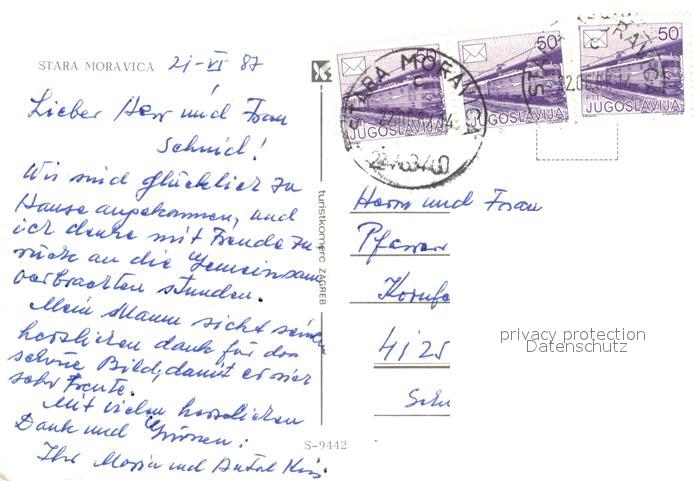 STARA MORAVICA 21-VI 87
Lieber Herr und Frau
Schmid!
Wir sind glücklich zu
Hause angekommen, und
ich denke mit Freude zu-
rück an die Gemeinsam
verbrachten stunden.
Mein Mann sicht seinen
herzlichen dank für das
schöne Bild, damit er sich
sehr freute.
Mit vielen herzlichen
Dank und Grüssen:
Ihre Maria und Antal Kiss
S-9442
turistkomerc ZAGREB
50
JUGOSLAVIJA
50
JUGOSLAVIJA
50
JUGOSLAVIJA
STARA MORAVICA
22.06.87.14
24463400
Herrn und Frau
Pfarrer
Kornfe
4125
privacy protection
Datenschutz